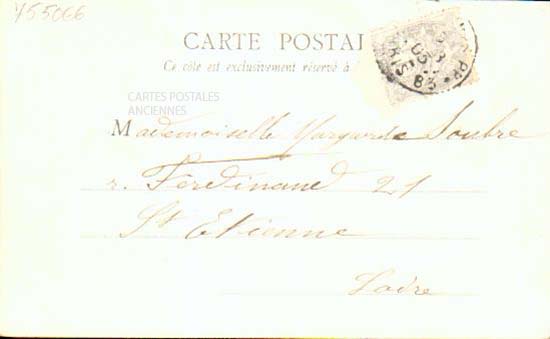 455066
CARTE POSTAL
Ce côté est exclusivement réservé à l
CARTES POSTALES
ANCIENNES
Mademoiselle Margarde Soubre
r. Ferdinand 21
St Etienne
Loire